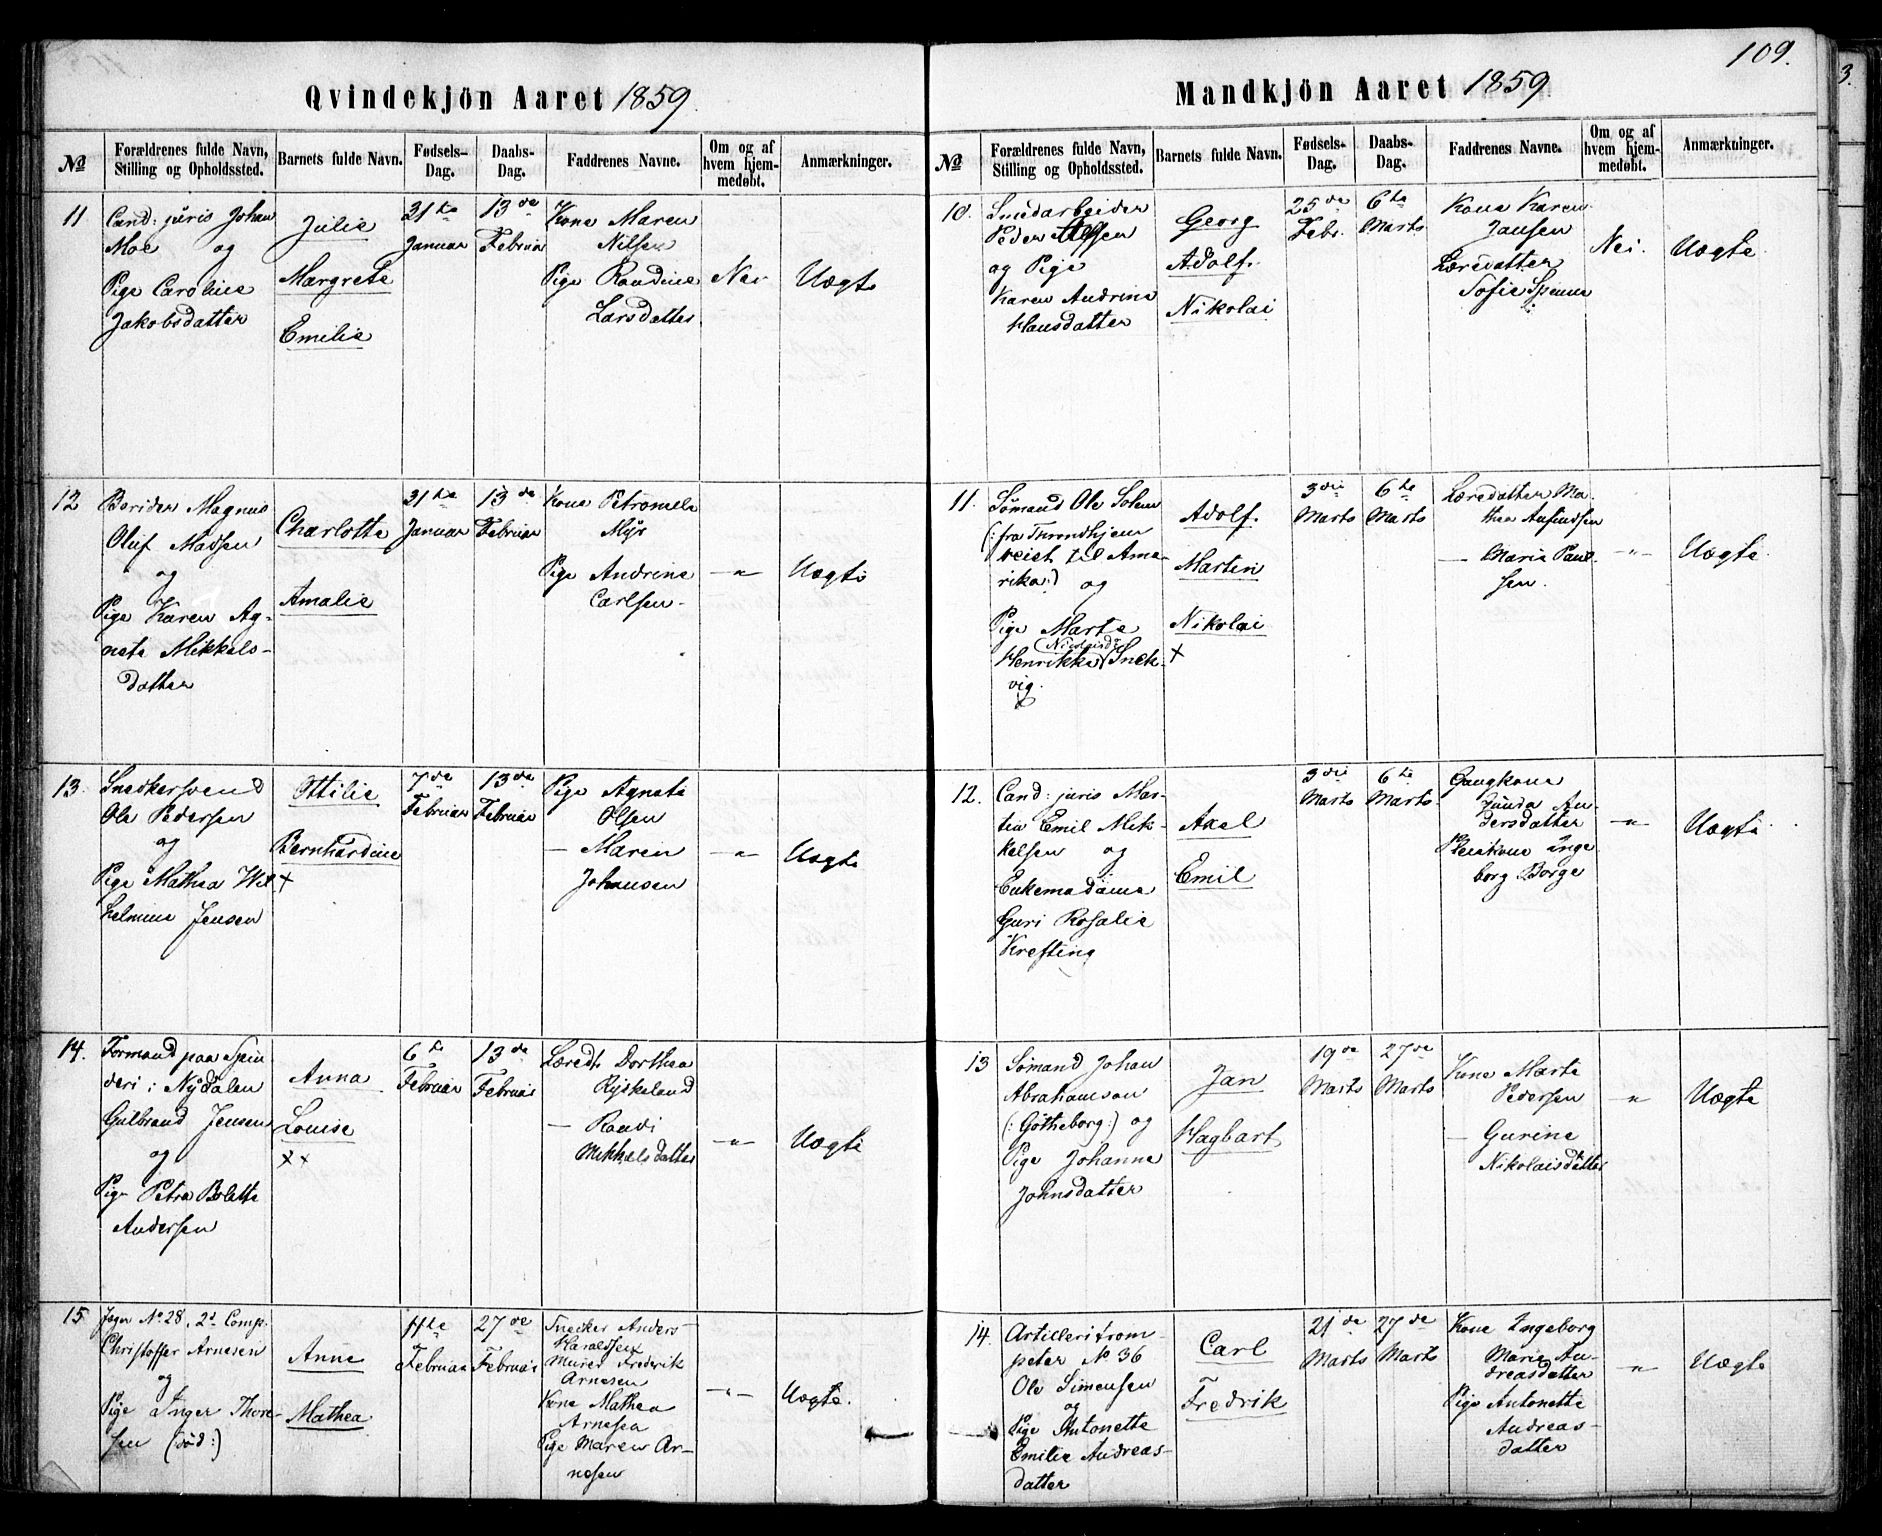 109.
3.
Qvindekjön Aaret 1859.
No
Forældrenes fulde Navn, Stilling og Opholdssted.
Barnets fulde Navn.
Fødsels-Dag.
Daabs-Dag.
Faddrenes Navne.
Om og af hvem hjem-medøbt.
Anmærkninger.
11
Cand: juris Johan
Moe og
Pige Caroline
Jakobsdatter
Julie
Margrete
Emilie
31te
Januar
13de
Februar
Kone Maren
Nilsen
Pige Randine
Larsdatter
Nei
Uægte
12
Berider Magnus
Oluf Madsen
og
Pige Karen Ag-
nete Mikkels-
datter
Charlotte
Amalie
31te
Januar
13de
Februar
Kone Petromele
Myr
Pige Andrine
Carlsen
— " —
Uægte
13.
Snedkersvend
Ole Pedersen
og
Pige Mathea Wil
helmine Jensen
Ottilie
Bernhardine
+
7de
Februar
13de
Februar
Pige Agnete
Olsen
— Maren
Johansen
— " —
Uægte
14.
Formand paa Spin
deri i Nydalen
Gulbrand Jensen
og
Pige Petra Bolette
Andersen
Anna
Louise
++
6te
Februar
13de
Februar
Læredt. Dorthea
— Randi
Mikkelsdatter
— " —
Uægte
15.
Jæger No 28, 2d Comp.
Christoffer Arnesen
og
Pige Inger Thore-
sen (død:)
Anne
Mathea
11te
Februar
27de
Februar
Snecker Anders
Haraldsen
Murer Frederik
Arnesen
Kone Mathea
Arnesen
Pige Maren Ar-
nesen
— " —
Uægte.
Mandkjön Aaret 1859
No
Forældrenes fulde Navn, Stilling og Opholdssted.
Barnets fulde Navn.
Fødsels-Dag.
Daabs-Dag.
Faddrenes Navne.
Om og af hvem hjem-medøbt.
Anmærkninger.
10.
Smedarbeider
Peder Olsen
og Pige
Karen Andrine
Hansdatter
Georg
Adolf.
Nikolai
25de
Febr.
6te
Marts
Kone Karen
Jansen
Læredatter
Sofie
Nei.
Uægte.
11.
Sømand Ole Solem
(: fra Throndhjem
reist til Ame-
rika:) og
Pige Marte
Henrikke Snek-
vig.
Adolf.
Marten
Nikolai
+
3die
Marts
6te
Marts
Læredatter Ma-
thea Anfindsen
— Marie Paul-
sen.
— " —
Uægte.
12.
Cand: juris Mar-
tin Emil Mik-
kelsen og
Enkemadame
Guri Rosalie
Krefting
Axel
Emil
3die
Marts
6te
Marts.
Gangkone
Gunda An-
dersdatter
Pleiekone Inge
borg Borge
— " —
Uægte.
13
Sømand Johan
Abrahamson
(: Gøtheborg:) og
Pige Johanne
Johnsdatter
Jan
Hagbart
19de
Marts
27de
Marts
Kone Marte
Pedersen
— Gurine
Nikolaisdatter
— " —
Uægte
14.
Artilleritrom-
peter No 36
Ole Simensen
og
Pige Antonette
Emilie Andreas-
datter
Carl
Fredrik
21de
Marts
27de
Marts
Kone Ingeborg
Marie An-
dreasdatter
Pige Antonette
Andreas-
datter
— " —
Uægte